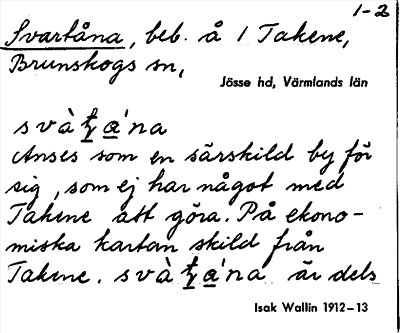 1-2
Svartåna, beb. å 1 Takene,
Brunskogs sn,
Jösse hd, Värmlands län
svàt̠a̠'na
Anses som en särskild by för
sig, som ej har något med
Takene att göra. På ekono-
miska kartan skild från
Takene. svàt̠a̠'na är dels
Isak Wallin 1912–13